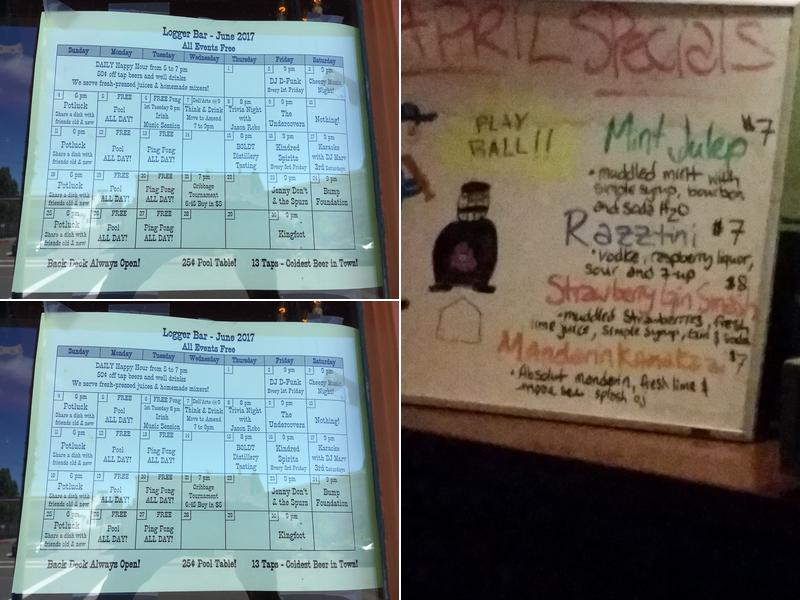 Logger Bar - June 2017
All Events Free
Sunday Monday Tuesday Wednesday Thursday Friday Saturday
DAILY Happy Hour from 6 to 7 pm
50¢ off tap beers and well drinks
We serve fresh-pressed juices & homemade mixers!
1
2 9 pm
DJ D-Funk
Every 1st Friday
3 9 pm
Cheesy Music
Night!
4 6 pm
Potluck
Share a dish with
friends old & new
5 FREE
Pool
ALL DAY!
6 FREE Pong
1st Tuesday 8 pm
Irish
Music Session
7 Dell'Arte @
Think & Drink
Move to Amend
7 to 9pm
8 8 pm
Trivia Night
with
Jason Robo
9 9 pm
The
Undercovers
10
Nothing!
11 6 pm
Potluck
Share a dish with
friends old & new
12 FREE
Pool
ALL DAY!
13 FREE
Ping Pong
ALL DAY!
14
15 8 pm
BOLDT
Distillery
Tasting
16 9 pm
Kindred
Spirits
Every 3rd Friday
17 9 pm
Karaoke
with DJ Marv
3rd Saturdays
18 6 pm
Potluck
Share a dish with
friends old & new
19 FREE
Pool
ALL DAY!
20 FREE
Ping Pong
ALL DAY!
21 7 pm
Cribbage
Tournament
6:45 Buy in $5
22
23 9 pm
Jenny Don't
& the Spurs
24 9 pm
Bump
Foundation
25 6 pm
Potluck
Share a dish with
friends old & new
26 FREE
Pool
ALL DAY!
27 FREE
Ping Pong
ALL DAY!
28
29
30 9 pm
Kingfoot
Back Deck Always Open! 25¢ Pool Table! 13 Taps - Coldest Beer in Town!
APRIL Specials
PLAY
BALL!!
Mint Julep $7
• muddled mint with
simple syrup, bourbon
and soda H2O
Razztini $7
• vodka, raspberry liquor,
sour and 7-up
$8
Strawberry Gin Smash
• muddled strawberries, fresh
lime juice, simple syrup, gin & soda
Mandarin Kamakaza $7
• Absolut mandarin, fresh lime &
splash oj
Logger Bar - June 2017
All Events Free
Sunday Monday Tuesday Wednesday Thursday Friday Saturday
DAILY Happy Hour from 6 to 7 pm
50¢ off tap beers and well drinks
We serve fresh-pressed juices & homemade mixers!
1
2 9 pm
DJ D-Funk
Every 1st Friday
3 9 pm
Cheesy Music
Night!
4 6 pm
Potluck
Share a dish with
friends old & new
5 FREE
Pool
ALL DAY!
6 FREE Pong
1st Tuesday 8 pm
Irish
Music Session
7 Dell'Arte @
Think & Drink
Move to Amend
7 to 9pm
8 8 pm
Trivia Night
with
Jason Robo
9 9 pm
The
Undercovers
10
Nothing!
11 6 pm
Potluck
Share a dish with
friends old & new
12 FREE
Pool
ALL DAY!
13 FREE
Ping Pong
ALL DAY!
14
15 8 pm
BOLDT
Distillery
Tasting
16 9 pm
Kindred
Spirits
Every 3rd Friday
17 9 pm
Karaoke
with DJ Marv
3rd Saturdays
18 6 pm
Potluck
Share a dish with
friends old & new
19 FREE
Pool
ALL DAY!
20 FREE
Ping Pong
ALL DAY!
21 7 pm
Cribbage
Tournament
6:45 Buy in $5
22
23 9 pm
Jenny Don't
& the Spurs
24 9 pm
Bump
Foundation
25 6 pm
Potluck
Share a dish with
friends old & new
26 FREE
Pool
ALL DAY!
27 FREE
Ping Pong
ALL DAY!
28
29
30 9 pm
Kingfoot
Back Deck Always Open! 25¢ Pool Table! 13 Taps - Coldest Beer in Town!